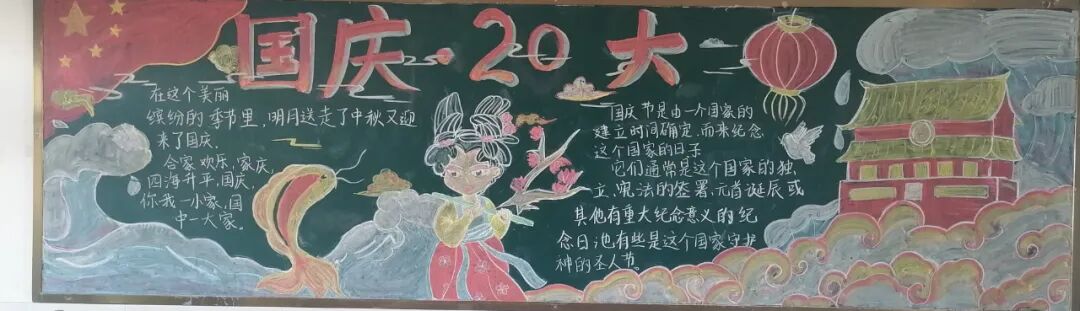 国庆·20大
在这个美丽
缤纷的季节里,明月送走了中秋又迎
来了国庆.
合家欢乐,家庆,
四海升平,国庆,
你我一小家,国
中一大家。
国庆节是由一个国家的
建立时间确定,而来纪念
这个国家的日子
它们通常是这个国家的独
立、宪法的签署、元首诞辰或
其他有重大纪念意义的纪
念日;也有些是这个国家守护
神的圣人节。